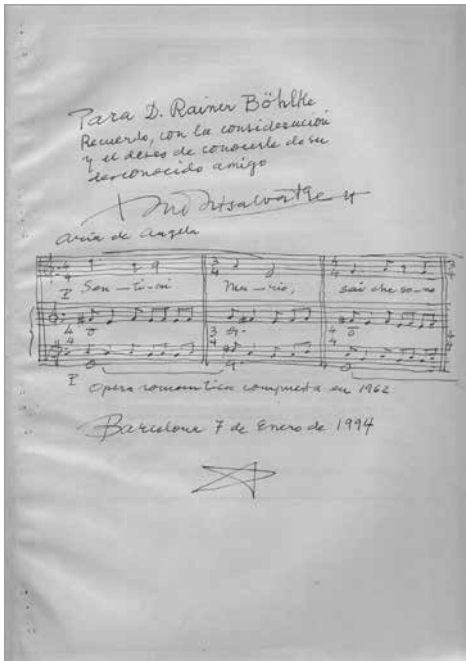 Para D. Rainer Böhlke
Recuerdo, con la consideración
y el deseo de conocerle de su
desconocido amigo
Montsalvatge
Aria de Angela
4 4 3 4 4 4 3 4
P Sen-ti-mi Ma-rio, sai che so-no
4 4 3 4 4 4
P Opera romantica compuesta en 1962
Barcelona 7 de Enero de 1994